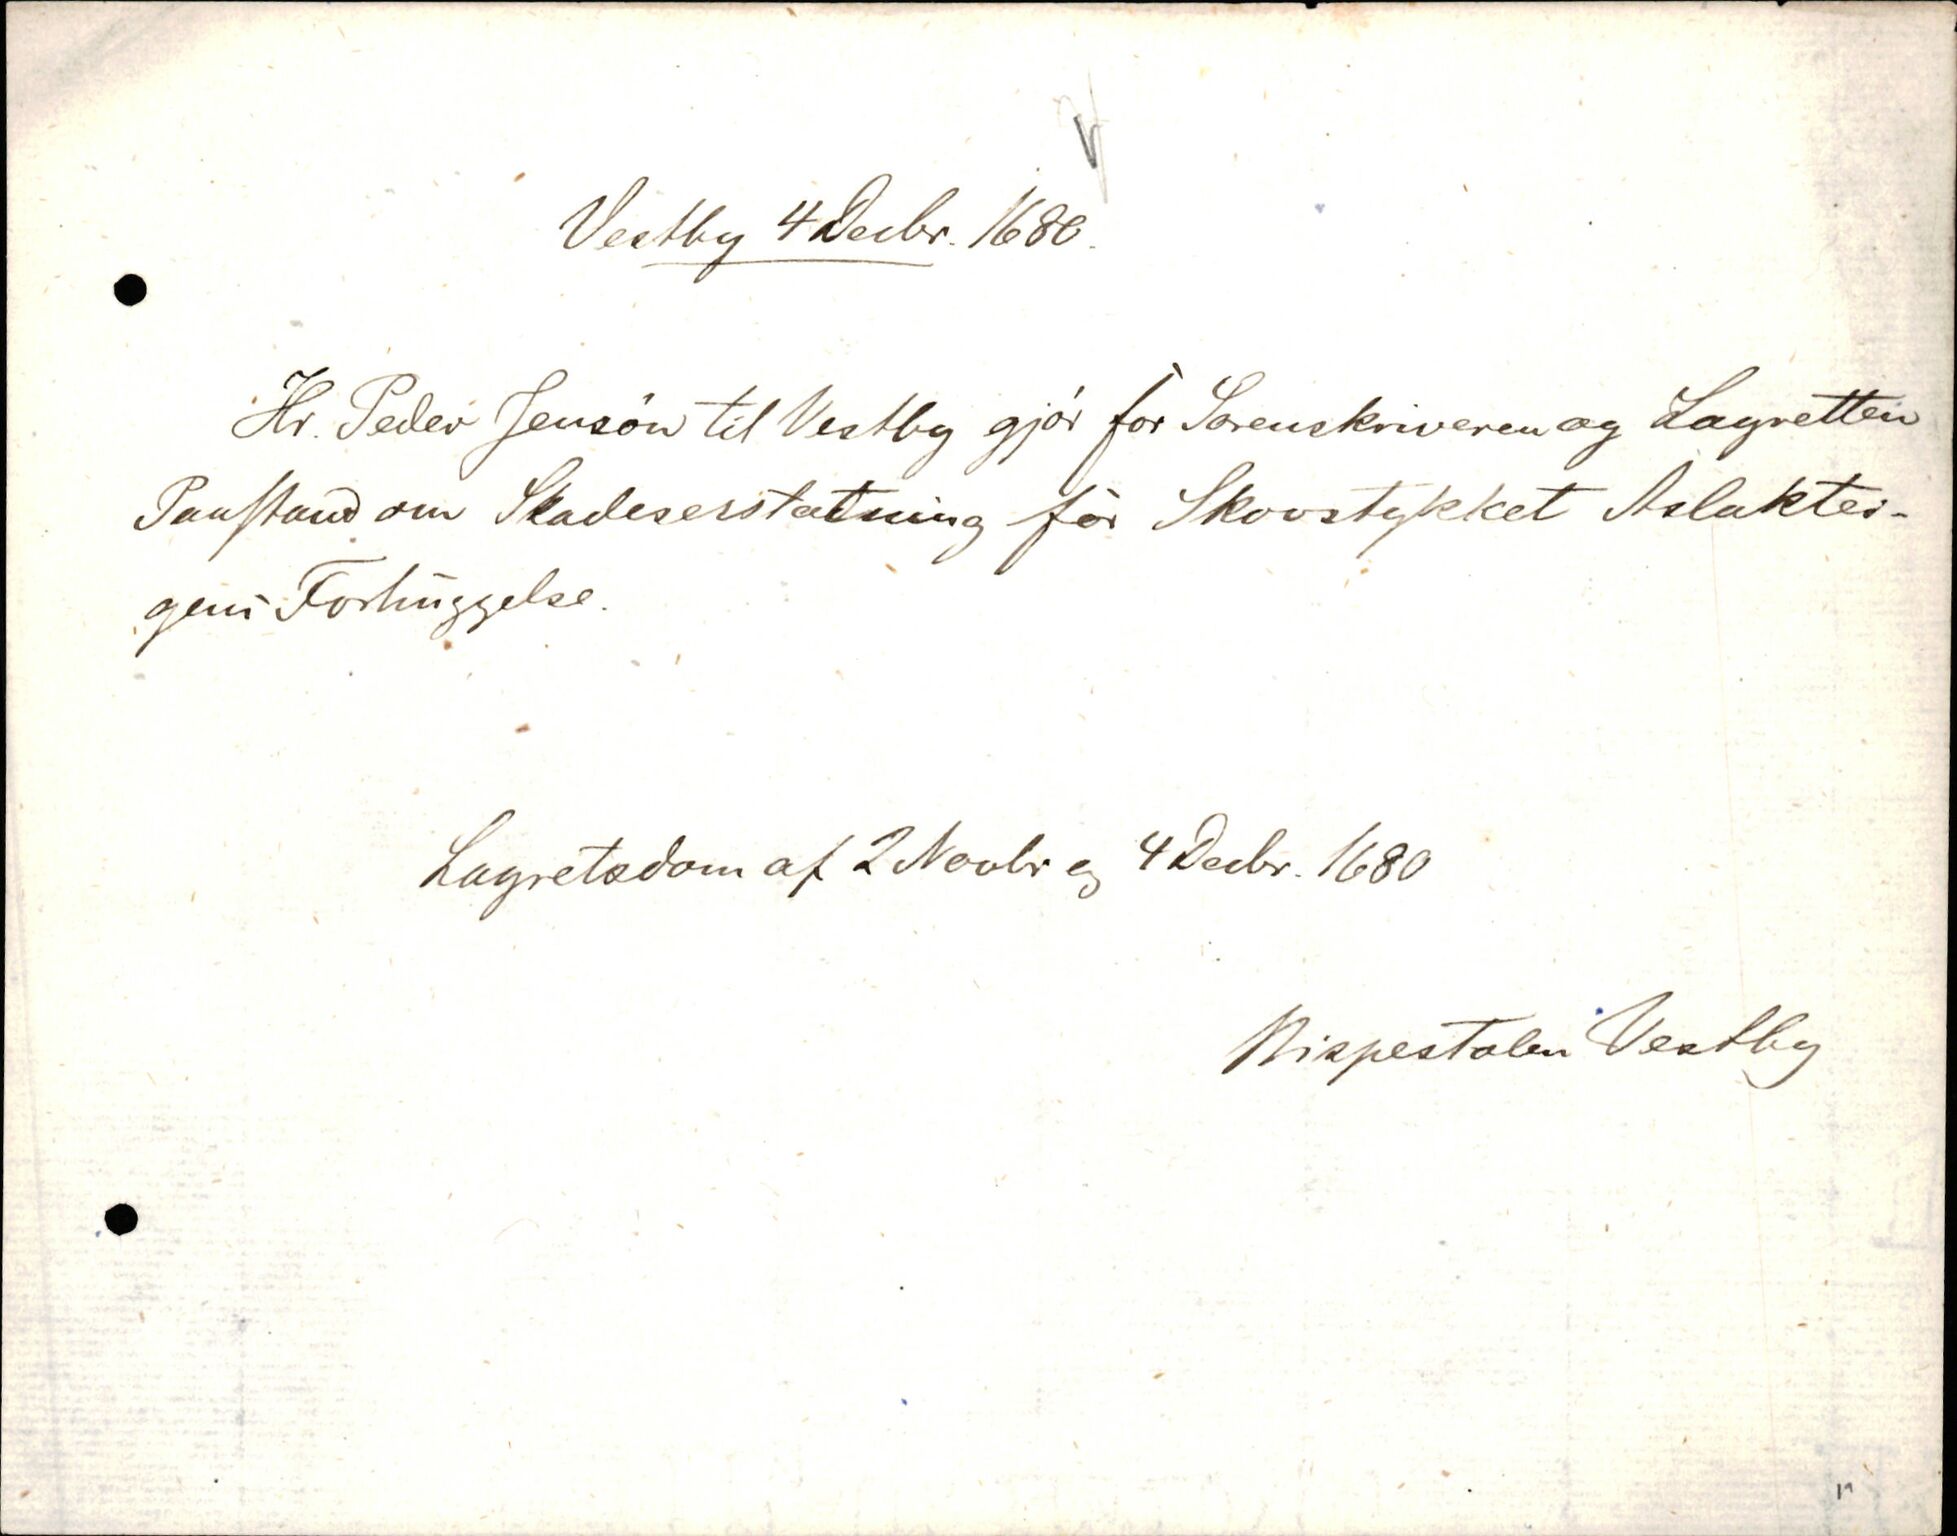 Vestby 4 Decbr. 1680.
Hr. Peder Jensön til Vestby gjör for Sorenskriveren og Lagretten
Paastand om Skadeserstatning for Skovstykket Aslaktei-
gens Forhuggelse.
Lagretsdom af 2 Novbr og 4 Decbr. 1680
Vestby